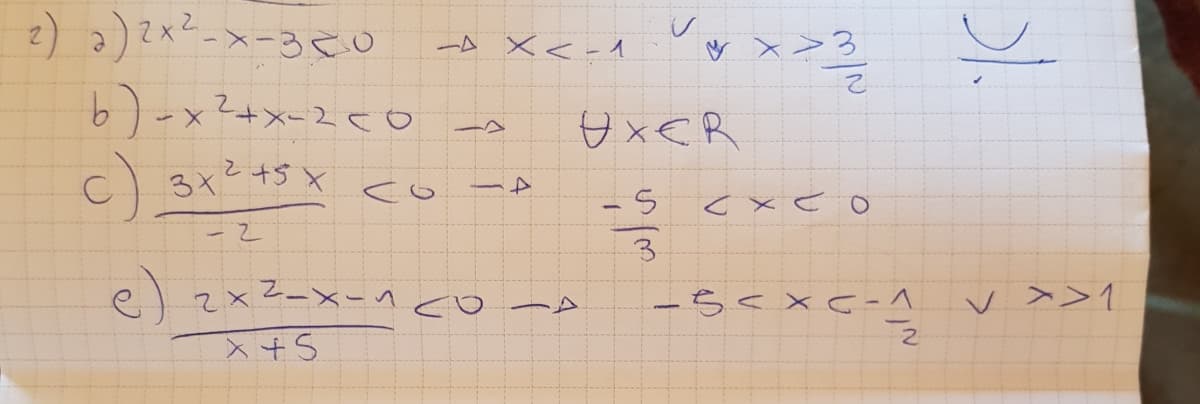 2) a) 2x² - x - 3 < 0 → x < -1 ∨ x > 3/2
b) -x² + x - 2 < 0 → ∀x∈R
c) (3x² + 5x)/-2 < 0 → -5/3 < x < 0
e) (2x² - x - 1)/(x + 5) < 0 → -5 < x < -1/2 ∨ x > 1